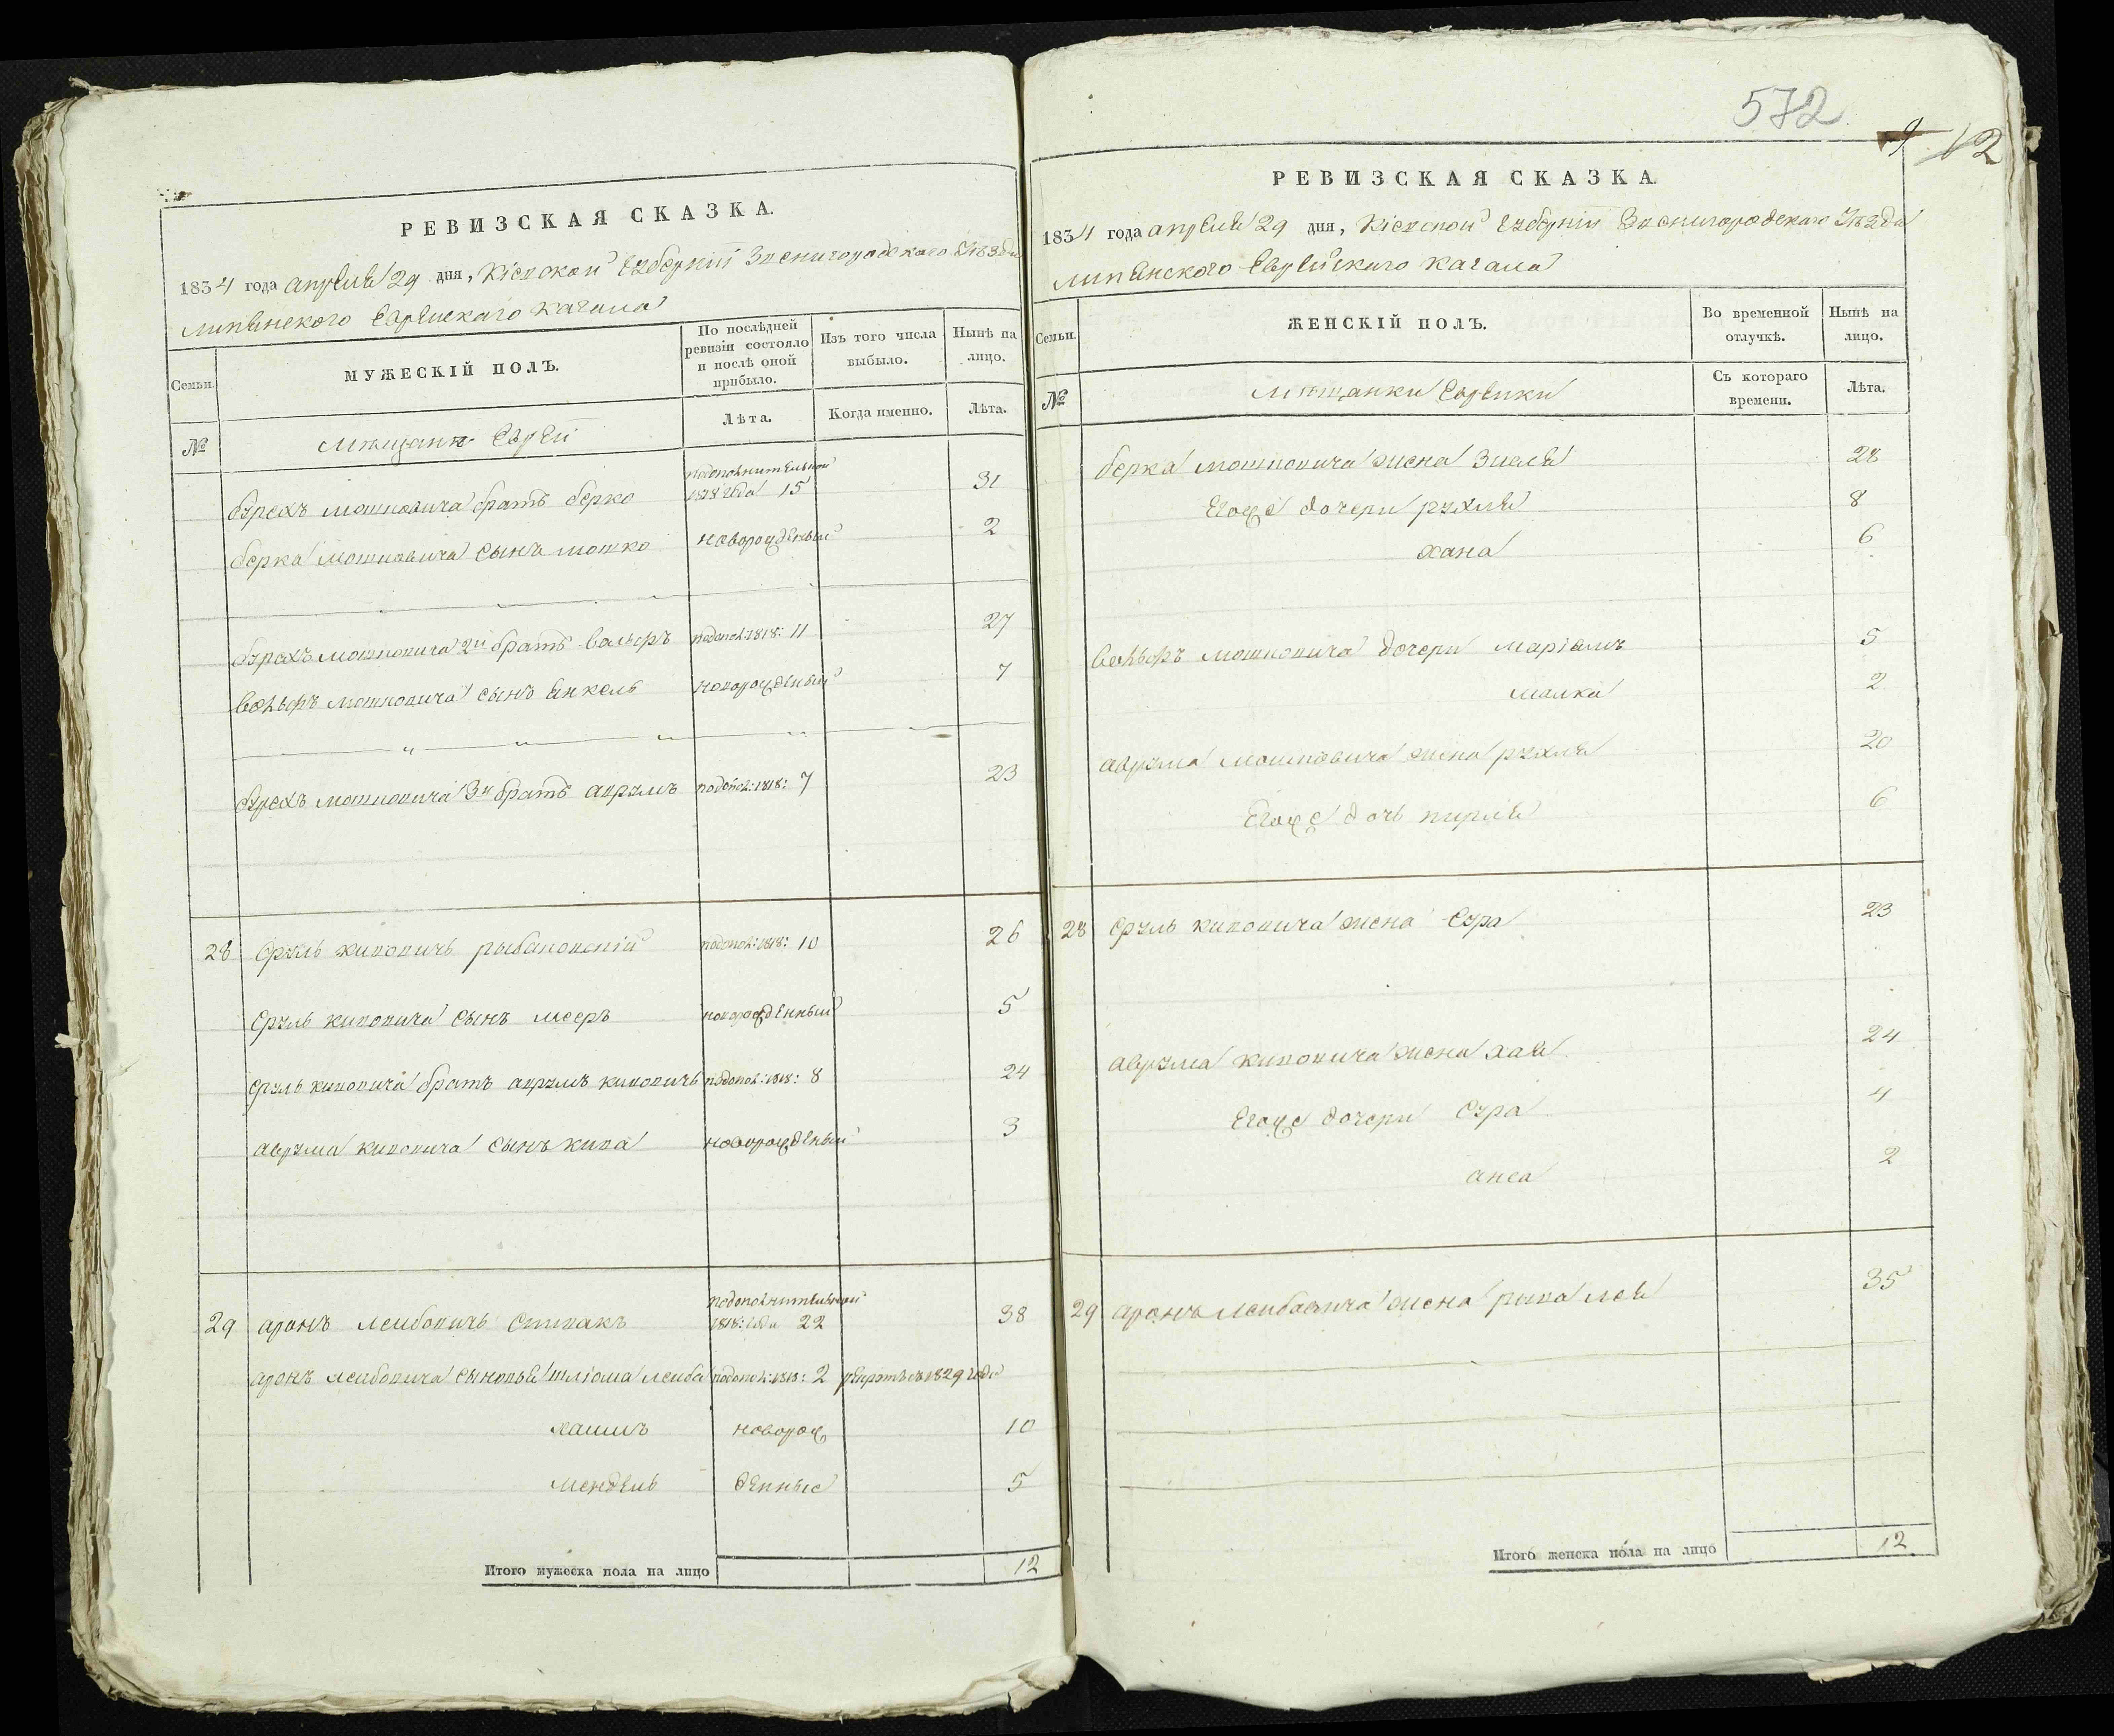 572
9 12
РЕВИЗСКАЯ СКАЗКА.
1834 года апреля 29 дня, Кіевской Губерніи Звенигородскаго Уезда
липянского Еврейскаго кагала
Семьи.
МУЖЕСКІЙ ПОЛЪ.
По послѣдней ревизіи состояло и послѣ оной прибыло.
Изъ того числа выбыло.
Нынѣ на лицо.
№
мещане Евреи
Лѣта.
Когда именно.
Лѣта.
бурехъ мошковича братъ берко подополнительной 1818 года 15 31
берка мошковича сынъ мошко новорожденый 2
бурехъ мошковича 2й братъ вольфъ подопол: 1818: 11 27
вольфъ мошковича сынъ янкель новорожденый 7
бурехъ мошковича 3й братъ аврумъ подопол: 1818: 7 23
28 сруль кивовичь рыбаковскій подопол: 1818: 10 26
сруль кивовича сынъ мееръ новорожденный 5
сруль кивовича братъ аврумъ кивовичь подопол: 1818: 8 24
аврума кивовича сынъ кива новорожденый 3
29 аронъ лейбовичь спивакъ подополнительной 1818: года 22 38
аронъ лейбовича сыновья шліома лейба подопол: 1818: 2 умре 1829 года
хаимъ новорож 10
мендель денные 5
Итого мужеска пола на лицо 12
РЕВИЗСКАЯ СКАЗКА.
1834 года апреля 29 дня, Кіевской Губерніи Звенигородскаго Уезда
липянского Еврейскаго кагала
Семьи.
ЖЕНСКІЙ ПОЛЪ.
Во временной отлучкѣ.
Нынѣ на лицо.
№
мещанки Еврейки
Съ котораго времени.
Лѣта.
берка мошковича жена зисля 28
Егоже дочери рухля 8
хана 6
вольфъ мошковича дочери маріамъ 5
малка 2
аврума мошковича жена рухля 20
Егоже дочь пирля 6
28 сруль кивовича жена сура 23
аврума кивовича жена хая 24
Егоже дочери сура 4
анса 2
29 аронъ лейбовича жена рива лея 35
Итого женска пола на лицо 12